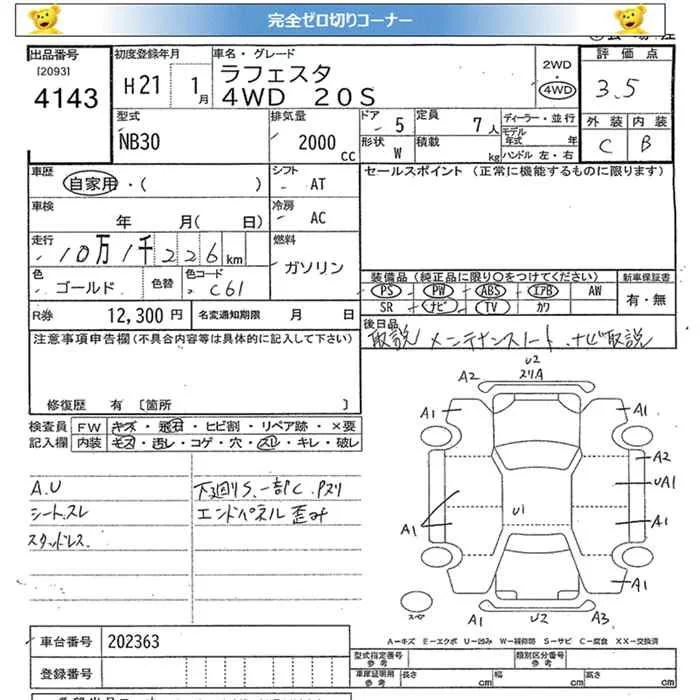 完全ゼロ切りコーナー
出品番号
[2093]
4143
初度登録年月
H21 1月
車名・グレード
ラフェスタ
4WD 20S
2WD
・
4WD
評価点
3.5
外装 内装
C B
型式
NB30
排気量
2000 cc
ドア 5
形状 W
定員 7人
積載 kg
ディーラー・並行
モデル年式 年
ハンドル 左・右
車歴
自家用・( )
シフト
AT
セールスポイント (正常に機能するものに限ります)
車検
年 月( 日)
冷房
AC
走行
10万1千226km
燃料
ガソリン
色
ゴールド
色替
色コード
C61
装備品(純正品に限り○をつけてください)
新車保証書
PS PW ABS エアB AW
SR ナビ TV カワ
有・無
R券 12,300円 名変通知期限 月 日
後日品
取説 メンテナンスノート ナビ取説
注意事項申告欄(不具合内容等は具体的に記入して下さい)
修復歴 有 〔箇所 〕
検査員 FW キズ・飛石・ヒビ割・リペア跡・×要
記入欄 内装 キズ・汚レ・コゲ・穴・スレ・キレ・破レ
A.U
シートスレ
スタッドレス.
下廻りS.一部C.Pスリ
エンドパネル歪み
U2
A2 スリA
A1 A1
A2
UA1
A1 U1 A1
A1
U2 A3
スペア
A−キズ E−エクボ U−凹み W−補修跡 S−サビ C−腐食 XX−交換済
車台番号 202363
登録番号
型式指定番号 参考
類別区分番号 参考
車庫証明用 参考 長さ cm 幅 cm 高さ cm